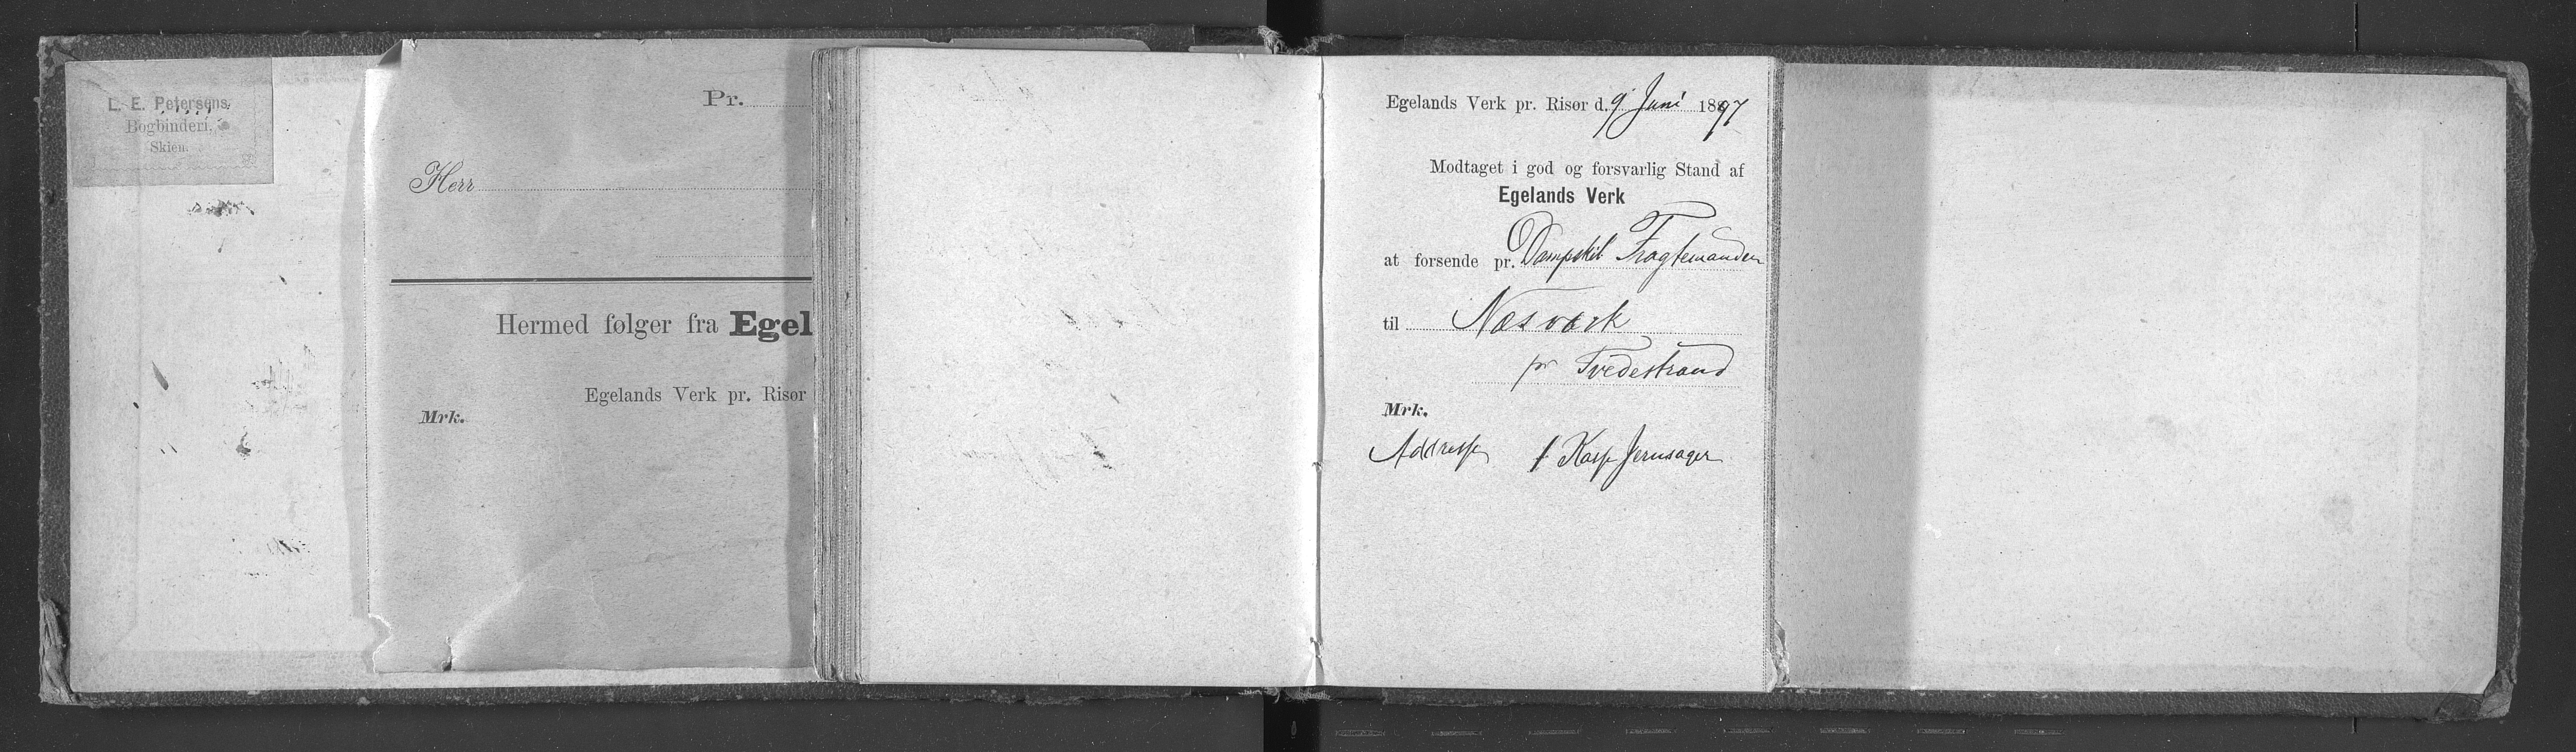 L. E. Petersens
Bogbinderi,
Skien.
Pr.
Herr
Hermed følger fra Egel
Egelands Verk pr. Risør
Mrk.
Egelands Verk pr. Risør d. 9' Juni 1897
Modtaget i god og forsvarlig Stand af
Egelands Verk
at forsende pr. Dampskib Fragtemanden
til Næsværk
pr Tvedestrand
Mrk.
Addresse 1 Kasse Jernsager